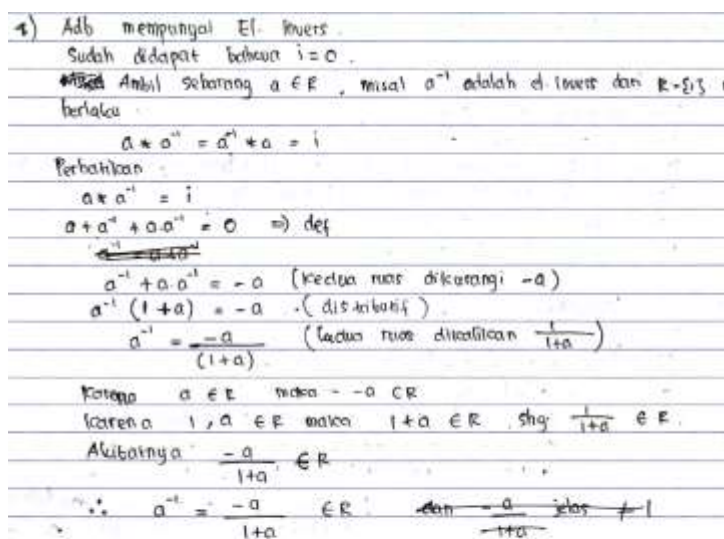 4) Adb mempunyai El. Invers.
Sudah didapat bahwa i = 0.
Ambil sebarang a ∈ R, misal a⁻¹ adalah el. invers dari R-{1}
berlaku
a * a⁻¹ = a⁻¹ * a = i
Perhatikan
a * a⁻¹ = i
a + a⁻¹ + a.a⁻¹ = 0 => def
a⁻¹ + a.a⁻¹ = -a (kedua ruas dikurangi -a)
a⁻¹ (1 + a) = -a (distributif)
a⁻¹ = -a/(1+a) (kedua ruas dikalikan 1/(1+a))
Karena a ∈ R maka - -a ∈ R
Karena 1, a ∈ R maka 1+a ∈ R shg 1/(1+a) ∈ R.
Akibatnya -a/(1+a) ∈ R
∴ a⁻¹ = -a/(1+a) ∈ R dan -a/(1+a) jelas ≠ 1